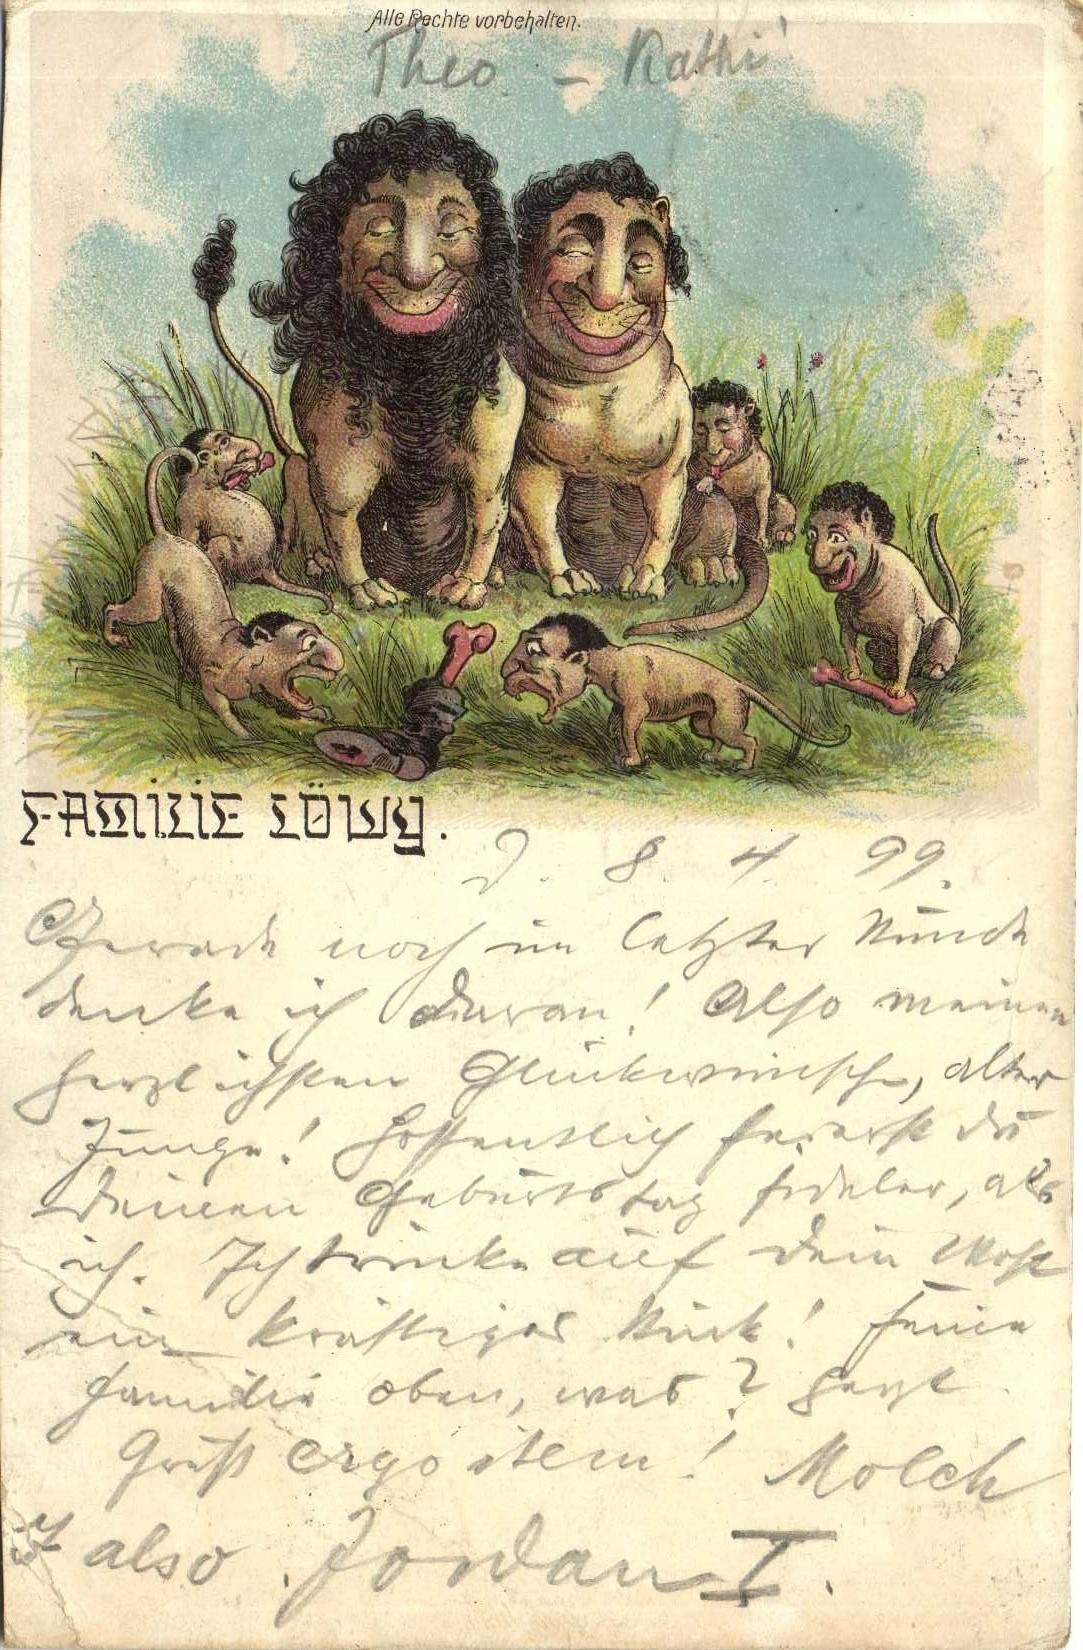 Alle Rechte vorbehalten.
Theo - Kathi
FAMILIE LÖWY.
D. 8. 4. 99.
Gerade noch in letzter Stunde
denke ich daran! Also meinen
herzlichsten Glückwunsch, alter
Junge! Hoffentlich feierst du
deinen Geburtstag fideler, als
ich. Ich trinke auf dein Wohl
ein kräftiges Stück! Feine
Familie oben, was? Herzl
Gruß ergo item! Molch
also Jordan I.